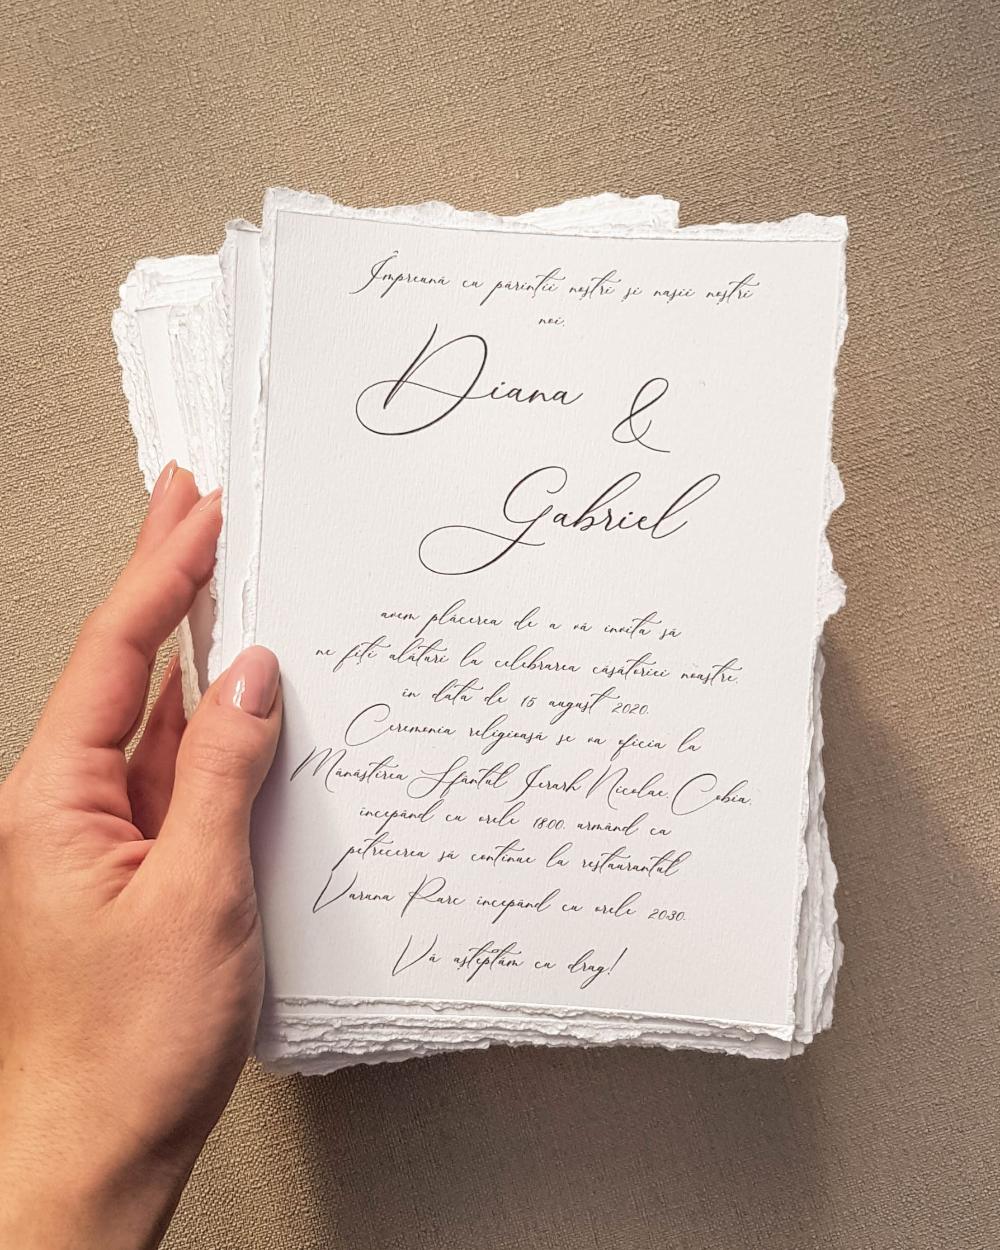 Împreună cu părinții noștri și nașii noștri
noi,
Diana &
Gabriel
avem plăcerea de a vă invita să
ne fiți alături la celebrarea căsătoriei noastre,
în data de 15 august 2020.
Ceremonia religioasă se va oficia la
Mânăstirea Sfântul Ierarh Nicolae, Cobia,
începând cu orele 18:00, urmând ca
petrecerea să continue la restaurantul
Varuna Parc începând cu orele 20:30.
Vă așteptăm cu drag!